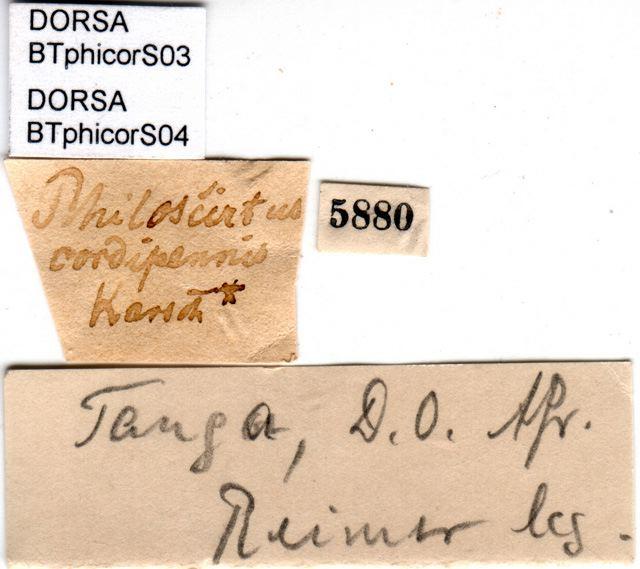 DORSA
BTphicorS03
DORSA
BTphicorS04
Philoscirtus
cordipennis
Karsch*
5880
Tanga, D.O. Afr.
Reimer leg.